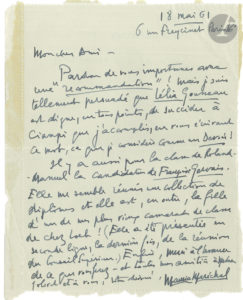 18 mai 61
6 rue Freycinet Paris 16e
Mon cher Ami –
"Pardon de vous importuner avec
une "recommandation" ! mais je suis
tellement persuadé que Lélia Gousseau
est digne, en tous points, de succéder à
Ciampi que j'accomplis, en vous écrivant
ce mot, ce que je considère comme un Devoir !
Il y a aussi pour la classe de Roland-
Manuel la candidature de Françoise Gervais.
Elle me semble réunir une collection de
diplômes et elle est, en outre, la fille
d'un de mes plus vieux camarades de classe
de chez Koch ! (Elle a été présentée en
seconde ligne, la dernière fois, de la réunion
du Conseil Supérieur) Enfin, Merci à l'avance
de ce que vous ferez – et toute mon amitié
à vous,